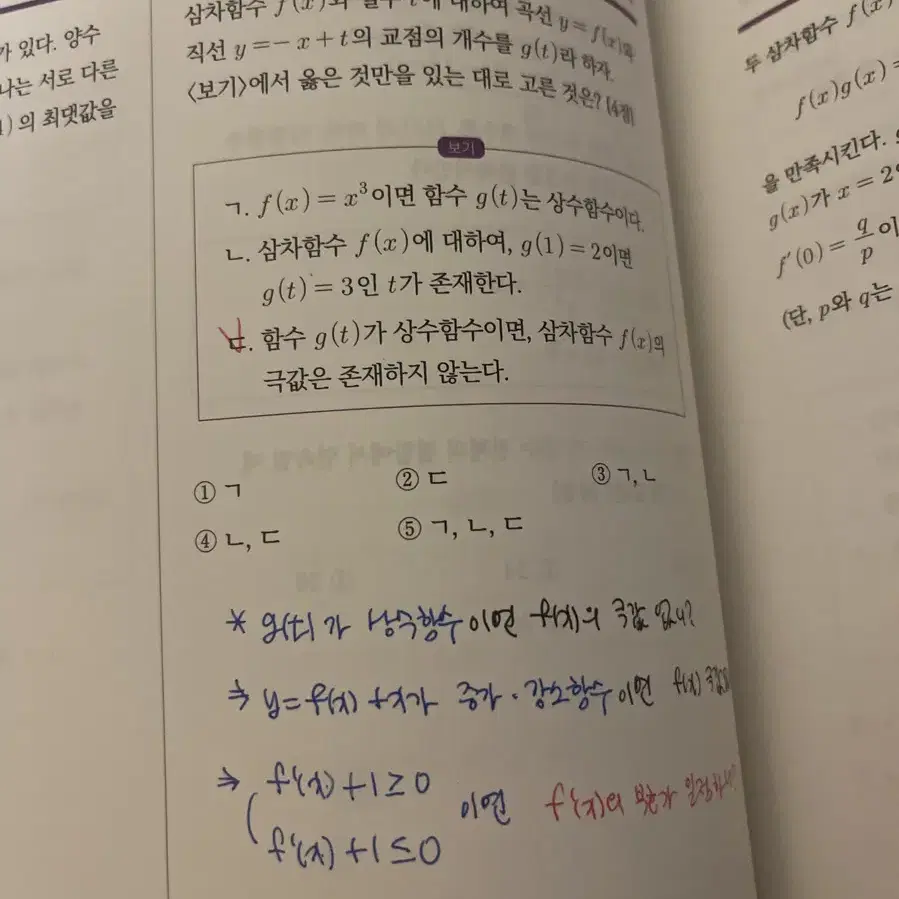 가 있다. 양수
나는 서로 다른
의 최댓값을
삼차함수 f(x)와 실수 t에 대하여 곡선 y=f(x)와
직선 y=-x+t의 교점의 개수를 g(t)라 하자.
<보기>에서 옳은 것만을 있는 대로 고른 것은? [4점]
보기
ㄱ. f(x)=x³이면 함수 g(t)는 상수함수이다.
ㄴ. 삼차함수 f(x)에 대하여, g(1)=2이면
g(t)=3인 t가 존재한다.
ㄷ. 함수 g(t)가 상수함수이면, 삼차함수 f(x)의
극값은 존재하지 않는다.
① ㄱ ② ㄷ ③ ㄱ, ㄴ
④ ㄴ, ㄷ ⑤ ㄱ, ㄴ, ㄷ
* g(t)가 상수함수이면 f(x)의 극값 없니?
⇒ y=f(x)+x가 증가·감소함수이면 f(x) 극값
⇒ f'(x)+1≥0
f'(x)+1≤0
이면 f'(x)의 부호가 일정하니?
두 삼차함수 f(x)
f(x)g(x)=
을 만족시킨다.
g(x)가 x=2
f'(0)=q/p이
(단, p와 q는